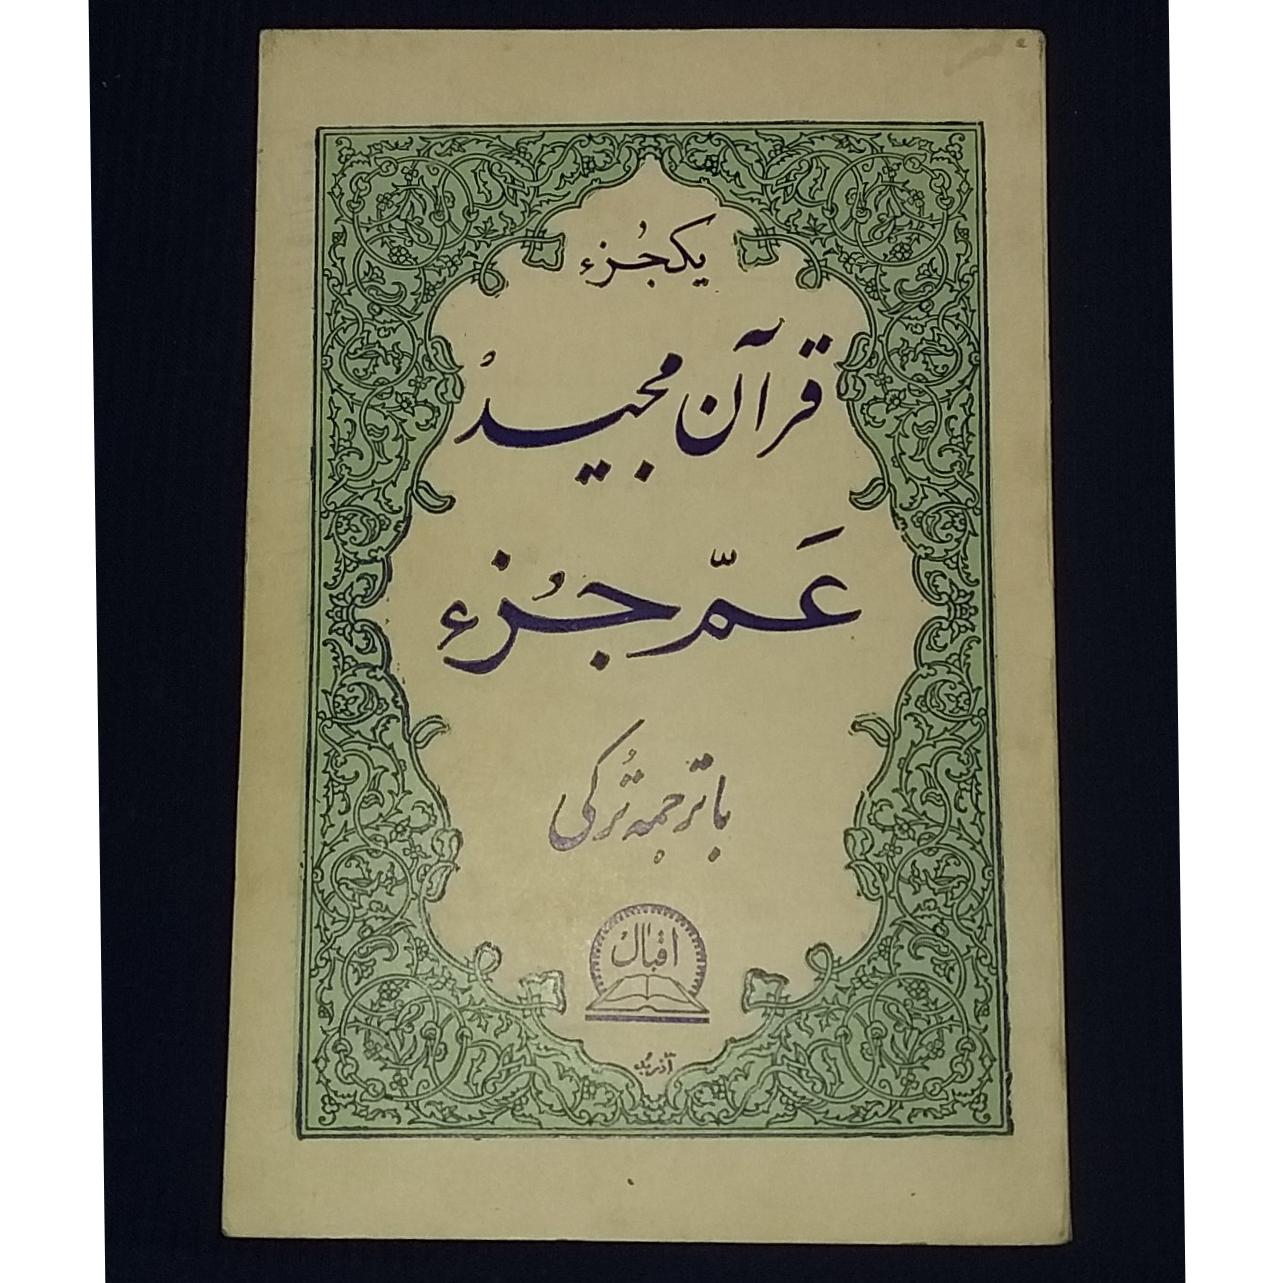 یکجُزء
قرآن مجیدُ
عَمّ جُزء
با ترجمه تُرکی
اقبال